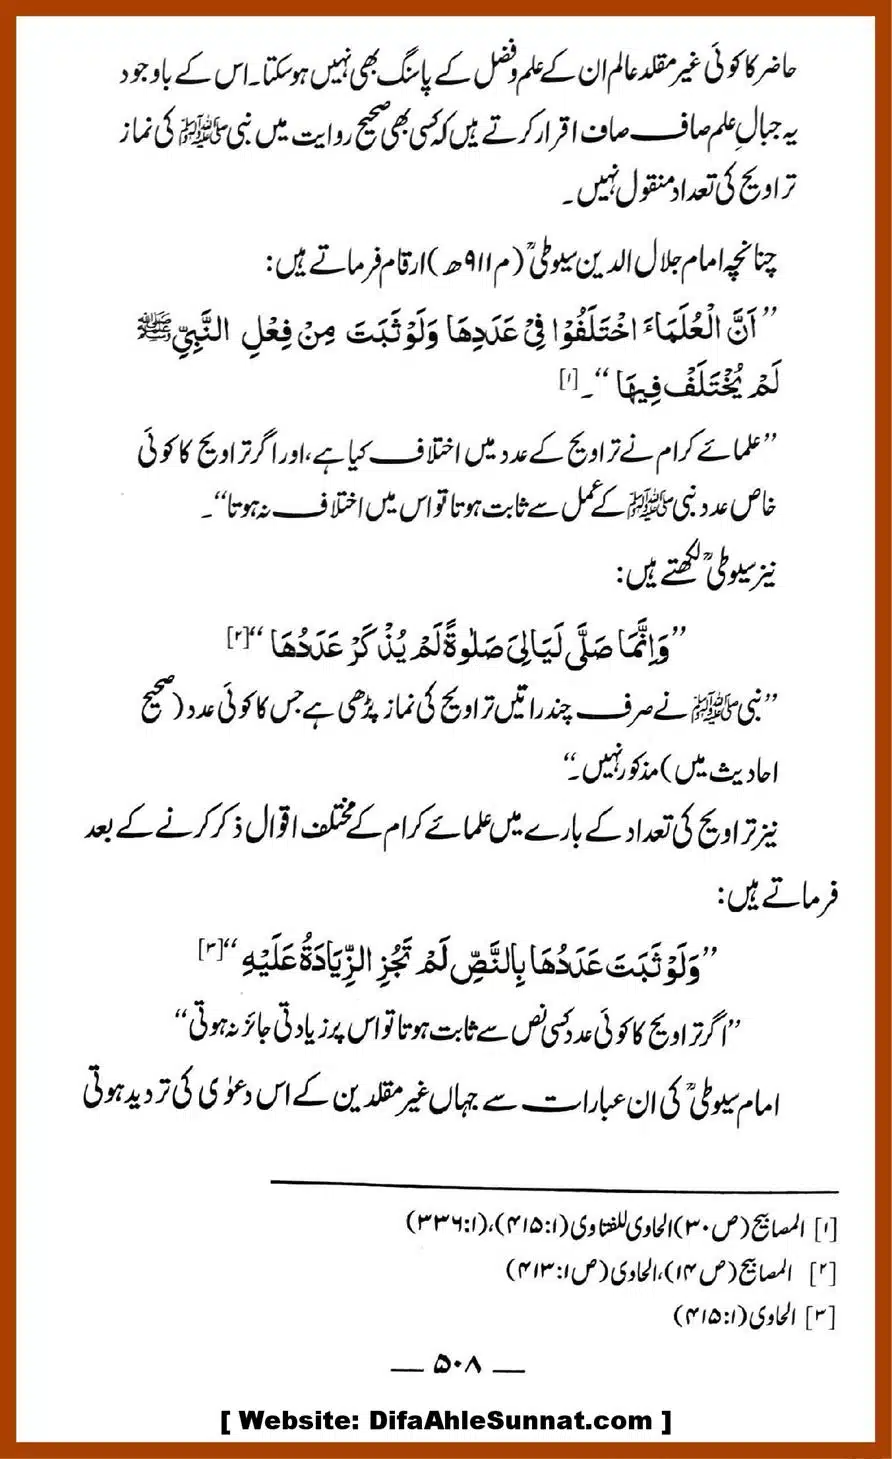 حاضر کا کوئی غیر مقلد عالم ان کے علم و فضل کے پاسنگ بھی نہیں ہو سکتا۔ اس کے باوجود
یہ جبالِ علم صاف صاف اقرار کرتے ہیں کہ کسی بھی صحیح روایت میں نبی ﷺ کی نماز
تراویح کی تعداد منقول نہیں۔
چنانچہ امام جلال الدین سیوطیؒ (م ۹۱۱ھ) ارقام فرماتے ہیں:
’’اَنَّ الْعُلَمَاءَ اخْتَلَفُوْا فِیْ عَدَدِهَا وَلَوْ ثَبَتَ مِنْ فِعْلِ النَّبِيِّ ﷺ
لَمْ يُخْتَلَفْ فِيهَا‘‘۔[۱]
’’علمائے کرام نے تراویح کے عدد میں اختلاف کیا ہے، اور اگر تراویح کا کوئی
خاص عدد نبی ﷺ کے عمل سے ثابت ہوتا تو اس میں اختلاف نہ ہوتا‘‘۔
نیز سیوطیؒ لکھتے ہیں:
’’وَاِنَّمَا صَلَّى لَيَالِىَ صَلٰوةً لَمْ يُذْكَرْ عَدَدُهَا‘‘[۲]
’’نبی ﷺ نے صرف چند راتیں تراویح کی نماز پڑھی ہے جس کا کوئی عدد (صحیح
احادیث میں) مذکور نہیں۔‘‘
نیز تراویح کی تعداد کے بارے میں علمائے کرام کے مختلف اقوال ذکر کرنے کے بعد
فرماتے ہیں:
’’وَلَوْ ثَبَتَ عَدَدُهَا بِالنَّصِّ لَمْ تَجُزِ الزِّيَادَةُ عَلَيْهِ‘‘[۳]
’’اگر تراویح کا کوئی عدد کسی نص سے ثابت ہوتا تو اس پر زیادتی جائز نہ ہوتی‘‘
امام سیوطیؒ کی ان عبارات سے جہاں غیر مقلدین کے اس دعوٰی کی تردید ہوتی
[۱] المصابیح (ص ۳۰) الحاوی للفتاوی (۱:۴۱۵)، (۱:۳۳۶)
[۲] المصابیح (ص ۱۴)، الحاوی (ص ۱:۴۱۳)
[۳] الحاوی (۱:۴۱۵)
— ۵۰۸ —
[ Website: DifaAhleSunnat.com ]